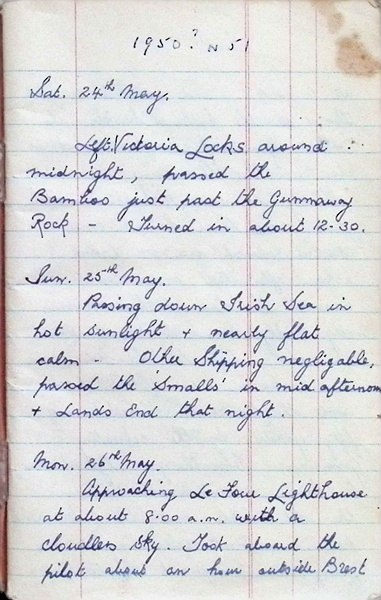 1950? N 51
Sat. 24th May.
Left Victoria Locks around
midnight, passed the
Bamboo just past the Gunnaway
Rock – Turned in about 12-30.
Sun. 25th May.
Passing down Irish Sea in
hot sunlight + nearly flat
calm – Other Shipping negligable,
passed the 'Smalls' in mid afternoon
+ Lands End that night.
Mon. 26th May.
Approaching Le Four Lighthouse
at about 8.00 a.m. with a
cloudless sky. Took aboard the
pilot about an hour outside Brest